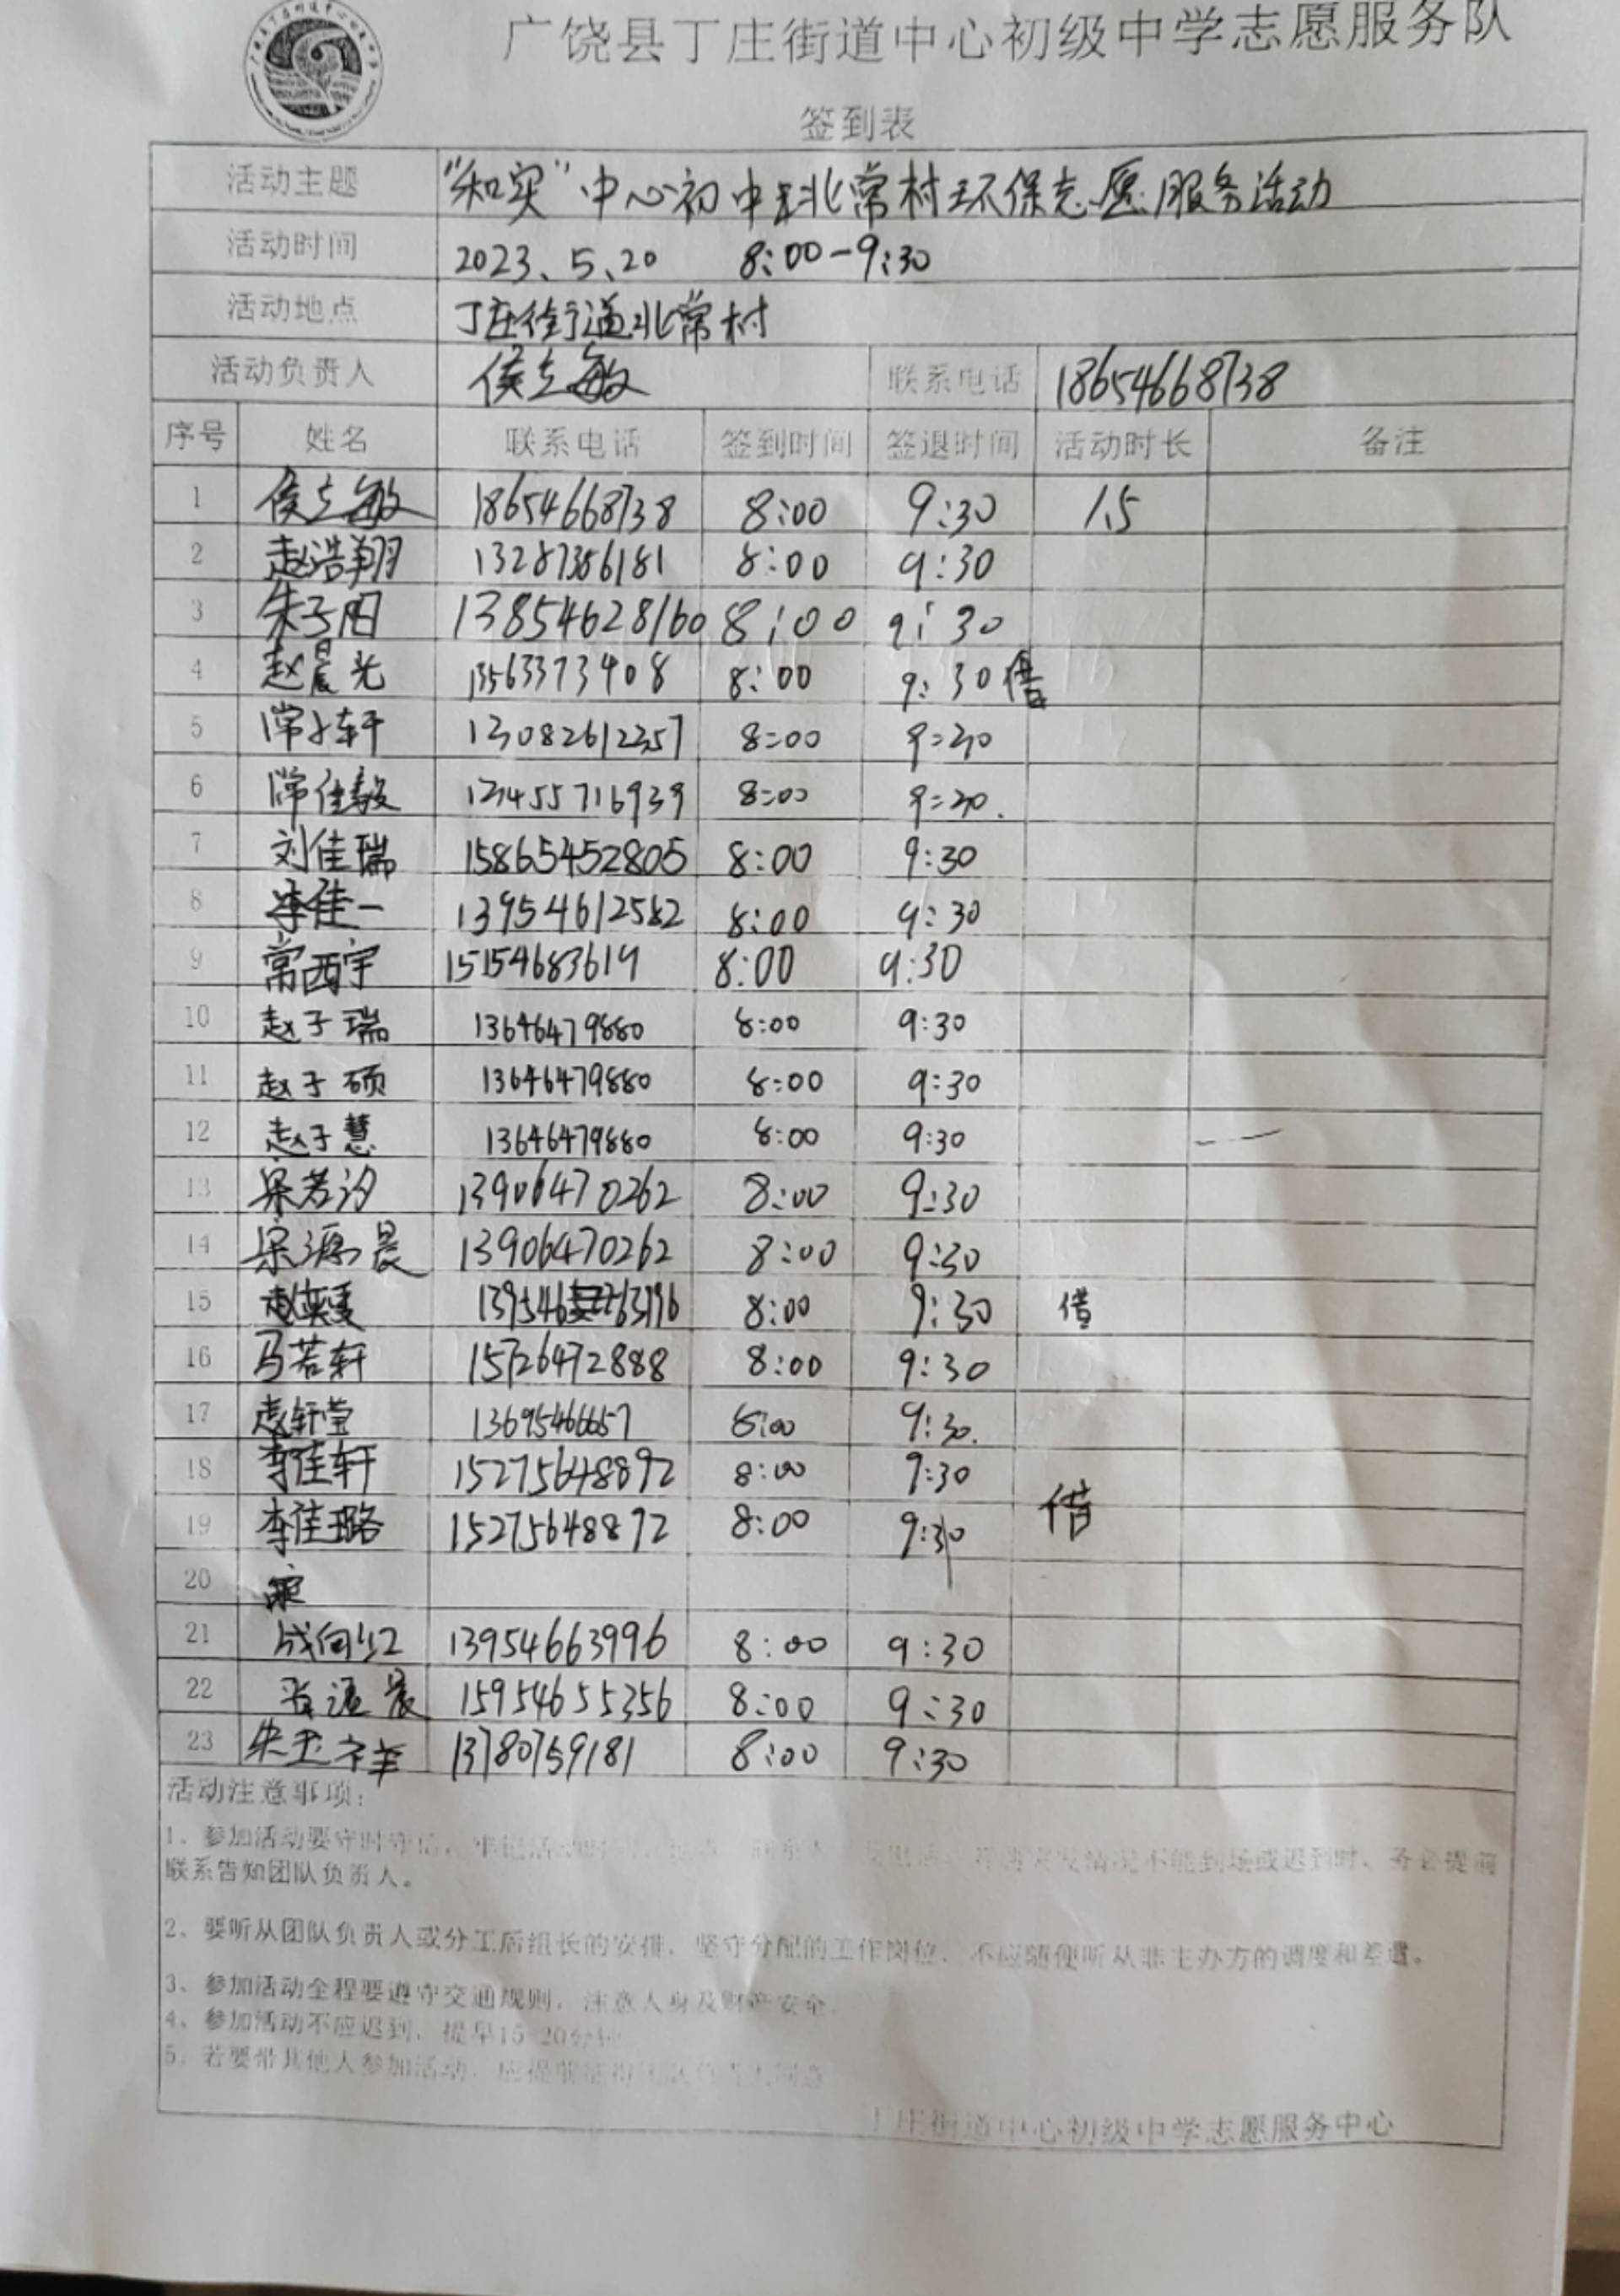 广饶县丁庄街道中心初级中学志愿服务队
签到表
活动主题 "和实"中心初中北常村环保志愿服务活动
活动时间 2023、5、20 8:00-9:30
活动地点 丁庄街道北常村
活动负责人 侯立敏 联系电话 18654668738
序号 姓名 联系电话 签到时间 签退时间 活动时长 备注
1 侯立敏 18654668738 8:00 9:30 1.5
2 赵浩翔 13287386181 8:00 9:30
3 朱子阳 13854628160 8:00 9:30
4 赵晨光 13563373408 8:00 9:30 借
5 常轩 13082612357 8:00 9:30
6 常佳毅 8:00 9:30
7 刘佳瑞 15865452805 8:00 9:30
8 李佳一 13954612582 8:00 9:30
9 常西宇 15154683619 8:00 9:30
10 赵子瑞 13646479880 8:00 9:30
11 赵子硕 13646479880 8:00 9:30
12 赵子慧 13646479880 8:00 9:30
13 梁若汐 13906470262 8:00 9:30
14 梁源晨 13906470262 8:00 9:30
15 赵英夏 8:00 9:30 借
16 马若轩 15726472888 8:00 9:30
17 赵轩莹 13695466657 8:00 9:30
18 李佳轩 15275648892 8:00 9:30
19 李佳璐 15275648892 8:00 9:30 借
20
21 成向红 13954663996 8:00 9:30
22 晨 15954655356 8:00 9:30
23 朱玉祥 13780759181 8:00 9:30
活动注意事项：
1、参加活动要守时守信，情况不能到场或迟到时，务必提前
联系告知团队负责人。
2、要听从团队负责人或分工后组长的安排，坚守分配的工作岗位，不应随便听从非主办方的调度和差遣。
3、参加活动全程要遵守交通规则，注意人身及财产安全
4、参加活动不应迟到，提早15-20分钟
5、若要带其他人参加活动，应提前
丁庄街道中心初级中学志愿服务中心